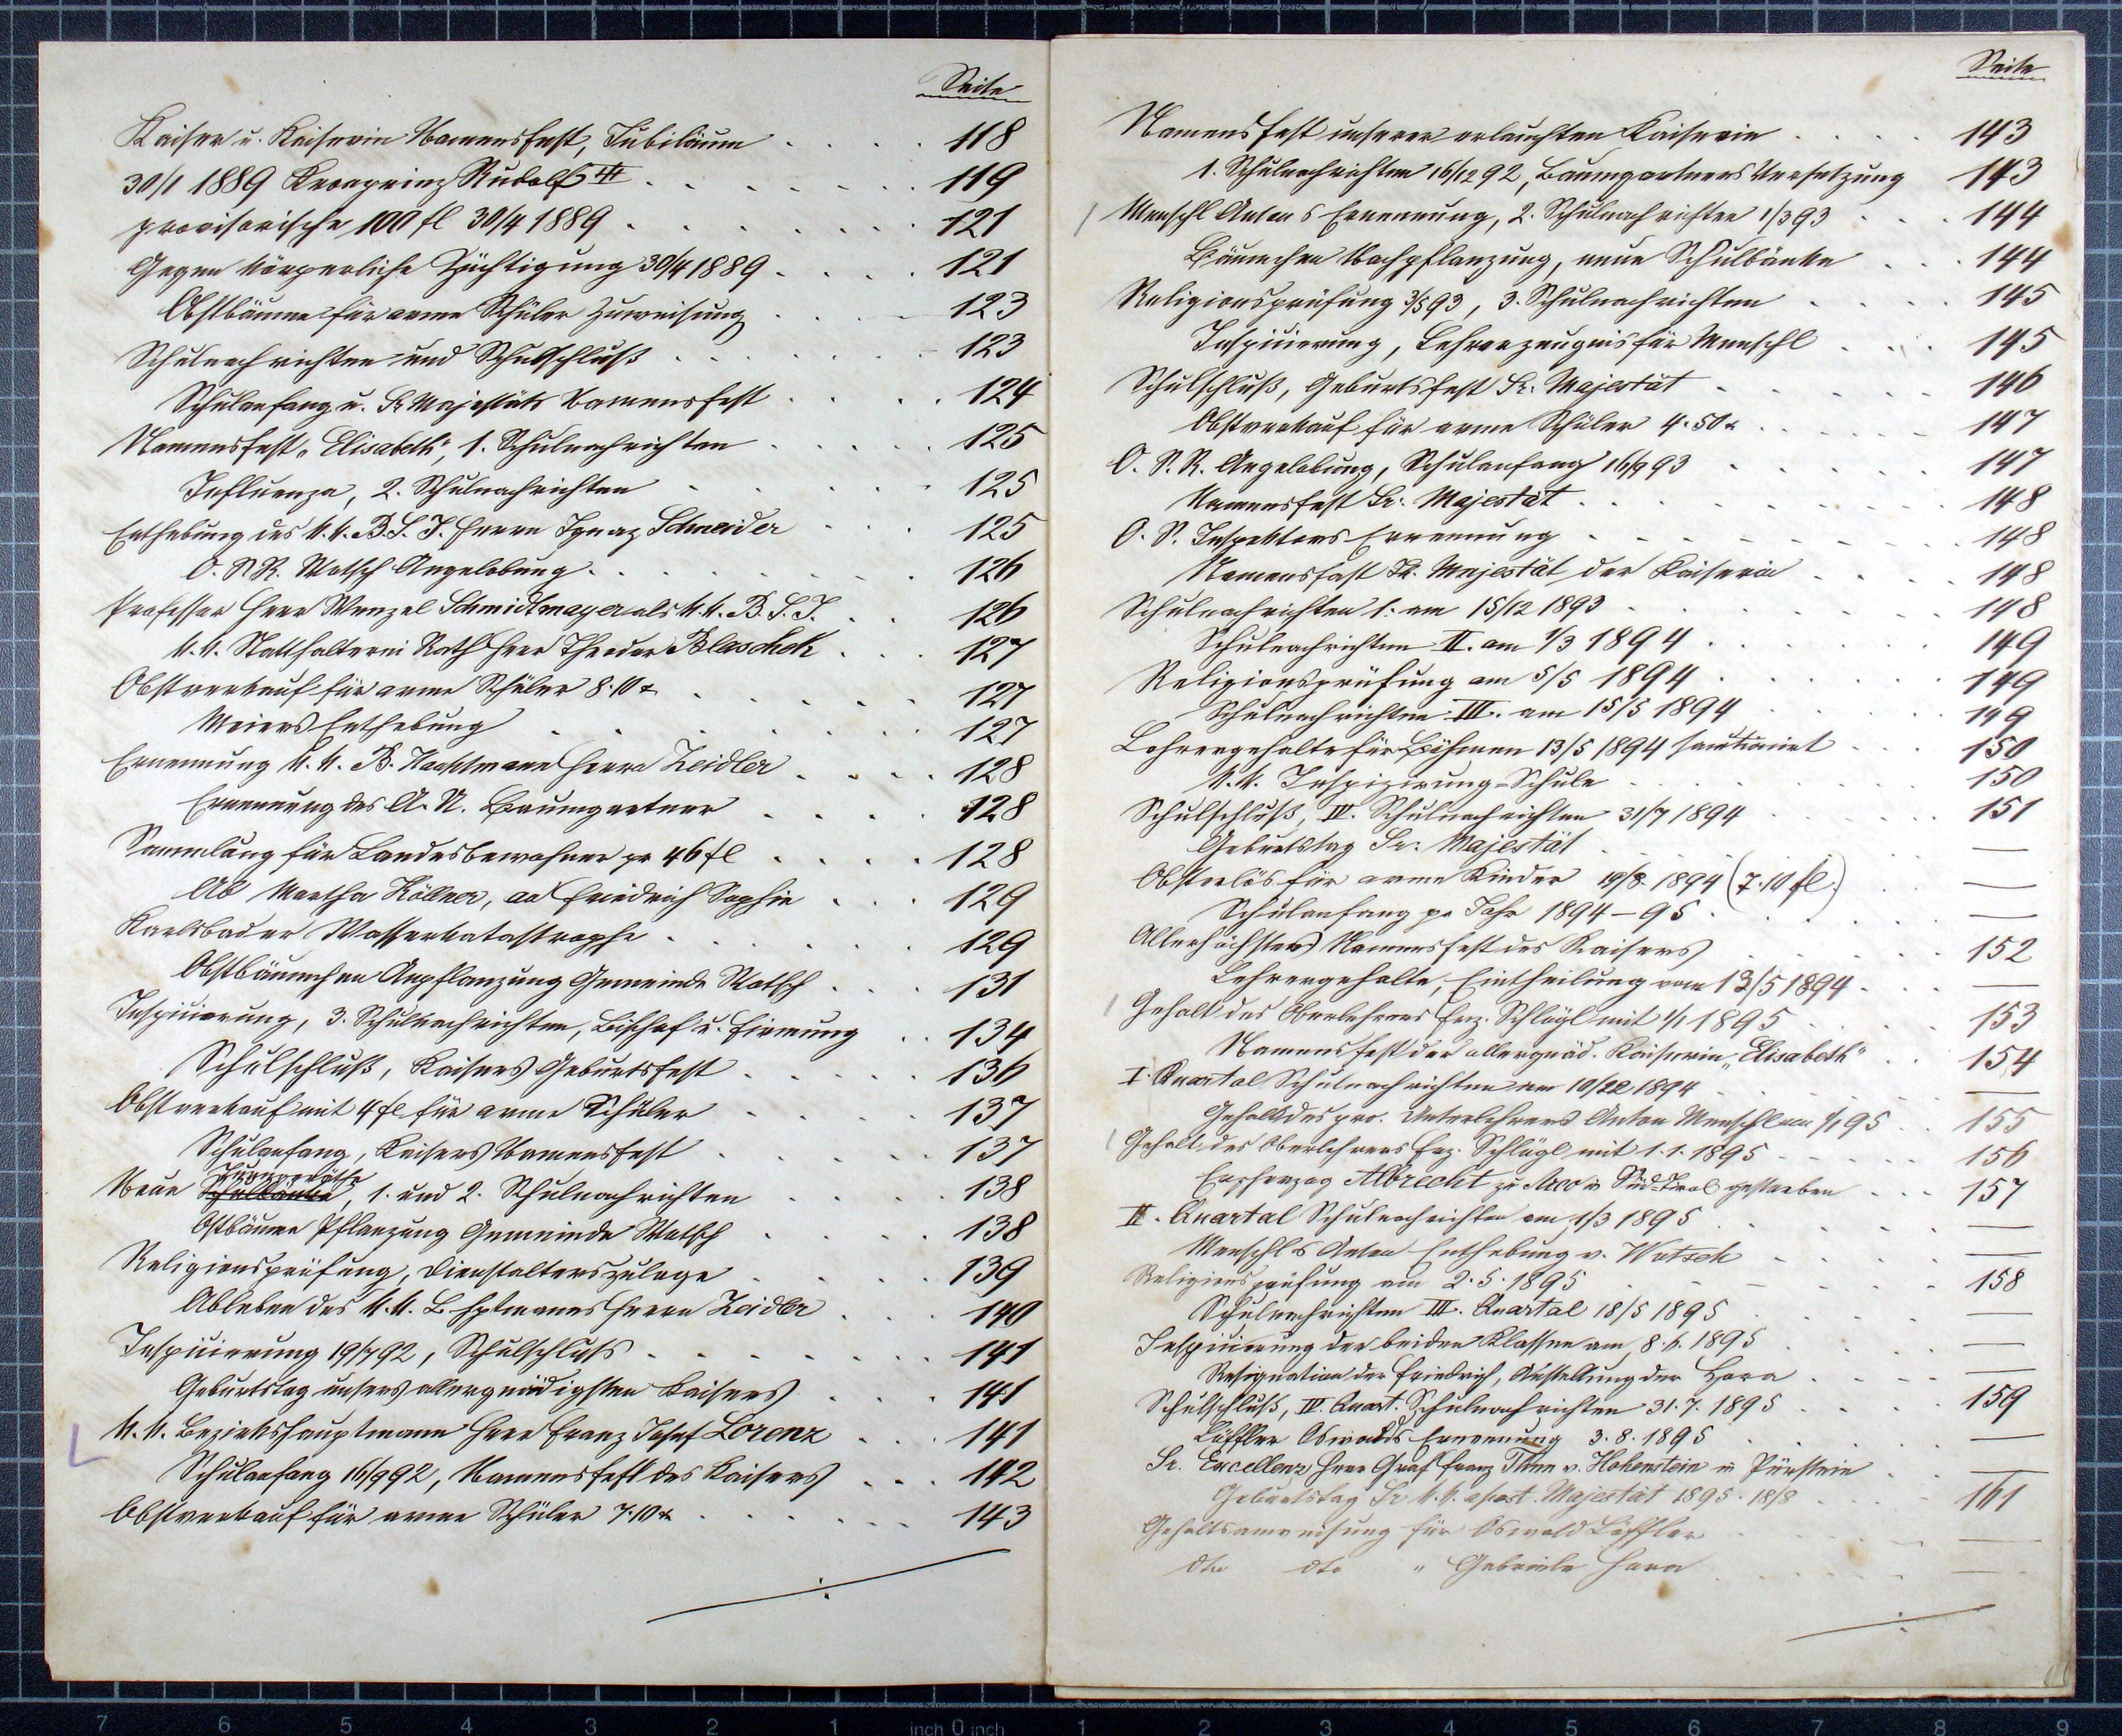 Seite
Kaiser u. Kaiserin Namensfest, Jubiläum . . . . 118
30/1 1889 Kronprinz Rudolf † . . . . . . . 119
provisorische 100 fl 30/4 1889 . . . . . . . 121
Gegen körperliche Züchtigung 30/4 1889 . . . . 121
Obstbäume für arme Schüler Zuweisung . . . . 123
Schulnachrichten und Schulschluß . . . . . . . 123
Schulanfang u. Sr Majestäts Namensfest . . . . 124
Namensfest „Elisabeth", 1. Schulnachrichten . . . . . 125
Influenza, 2. Schulnachrichten . . . . . 125
Enthebung des k. k. B. S. I. Herrn Ignaz Schneider . . . 125
O. S. R. Watsch Angelobung . . . . . . . . 126
Professor Herr Wenzel Schmidtmayer als k. k. B. S. I. . . 126
k. k. Statthalterei Rath Herr Theodor Blaschek . . . 127
Obstverkauf für arme Schüler 8·10 x . . . . . . 127
Meiers Enthebung . . . . . . . 127
Ernennung k. k. B. Hauptmann Herrn Zeidler . . . . 128
Ernennung des A. N. Baumgartner . . . . 128
Sammlung für Landesbewohner pr 46 fl . . . . 128
Ab Martha Köllner, ad Friedrich Sophie . . . 129
Karlsbader Wasserkatastrophe . . . . . . . 129
Obstbäumchen Anpflanzung Gemeinde Watsch . . . 131
Inspicierung, 3. Schulnachrichten, Bischof u. Firmung . . 134
Schulschluß, Kaisers Geburtsfest . . . . . 136
Obstverkauf mit 4 fl für arme Schüler . . . . 137
Schulanfang, Kaisers Namensfest . . . . . . 137
Turngeräthe
Neue Schulbänke, 1. und 2. Schulnachrichten . . . . 138
Ostbäume Pflanzung Gemeinde Watsch . . . . 138
Religionsprüfung, Dienstalterszulage . . . . . 139
Ableben des k. k. B. Hptmanns Herrn Zeidler . . . 140
Inspicierung 19/7 92, Schulschluß . . . . . . . 141
Geburtstag unsers allergnädigsten Kaisers . . . 141
k. k. Bezirkshauptmann Herr Franz Josef Lorenz . . . 141
Schulanfang 16/9 92, Namensfest des Kaisers . . . 142
Obstverkauf für arme Schüler 7·10 x . . . . . . 143
Seite
Namensfest unserer erlauchten Kaiserin . . . . 143
1. Schulnachrichten 16/12 92, Baumgartners Versetzung 143
Menschl Antons Ernennung, 2. Schulnachrichten 1/3 93 . . . 144
Bäumchen Nachpflanzung, neue Schulbänke . . . 144
Religionsprüfung 3/5 93, 3. Schulnachrichten . . . . 145
Inspicierung, Lehrerzeugnis für Menschl . . . 145
Schulschluß, Geburtsfest Sr. Majestät . . . . . . 146
Obstverkauf für arme Schüler 4·50 x . . . . . 147
O. S. R. Angelobung, Schulanfang 16/9 93 . . . . . 147
Namensfest Sr. Majestät . . . . . . . . 148
O. S. Inspektors Ernennung . . . . . . . . 148
Namensfest Ihr. Majestät der Kaiserin . . . . 148
Schulnachrichten 1. am 15/12 1893 . . . . . . . 148
Schulnachrichten II. am 1/3 1894 . . . . . . 149
Religionsprüfung am 5/5 1894 . . . . . . 149
Schulnachrichten III. am 15/5 1894 . . . . . . 149
Lehrergehalte für Böhmen 13/5 1894 sanctionirt . . . 150
k. k. Inspizirung-Schule . . . . . . . 150
Schulschluß, IV. Schulnachrichten 31/7 1894 . . . . . . 151
Geburtstag Sr. Majestät . . . . . . . —
Obsterlös für arme Kinder 19/8 1894 (7·10 fl.) . . —
Schulanfang pr Jahr 1894–95 . . . . . . . —
Allerhöchstes Namensfest des Kaisers . . . . . . 152
Lehrergehalte, Eintheilung vom 13/5 1894 . . . —
Gehalt des Oberlehrers Frz. Schlögl mit 1/1 1895 . . . . . 153
Namensfest der allergnäd. Kaiserin „Elisabeth" . . 154
I. Quartal Schulnachrichten am 10/12 1894 . . . . . —
Gehalt des pro. Unterlehrers Anton Menschl am 1/1 95 . . 155
Gehalt des Oberlehrers Frz. Schlögl mit 1. 1. 1895 . . . . . 156
Erzherzog Albrecht zu Arco in Süd-Tirol gestorben . . . 157
II. Quartal Schulnachrichten am 1/3 1895 . . . . . . —
Menschls Anton Enthebung v. Wotsch . . . . . —
Religionsprüfung am 2. 5. 1895 . . . . . . 158
Schulnachrichten III. Quartal 18/5 1895 . . . . . —
Inspicierung der beiden Klassen am 8. 6. 1895 . . . . —
Resignation der Friedrich, Anstellung der Hora . . . . —
Schulschluß, IV. Quart. Schulnachrichten 31. 7. 1895 . . . . 159
Löffler Oswalds Ernennung 3. 8. 1895 . . . . . —
Sr. Excellenz Herr Graf Franz Thun v. Hohenstein in Pürstein . . —
Geburtstag Sr k. k. apost. Majestät 1895. 18/8 . . . . 161
Gehaltsanweisung für Oswald Löffler . . . . . —
dto dto " Gabriele Hora . . . . . —
7 6 5 4 3 2 1 inch 0 inch 1 2 3 4 5 6 7 8 9